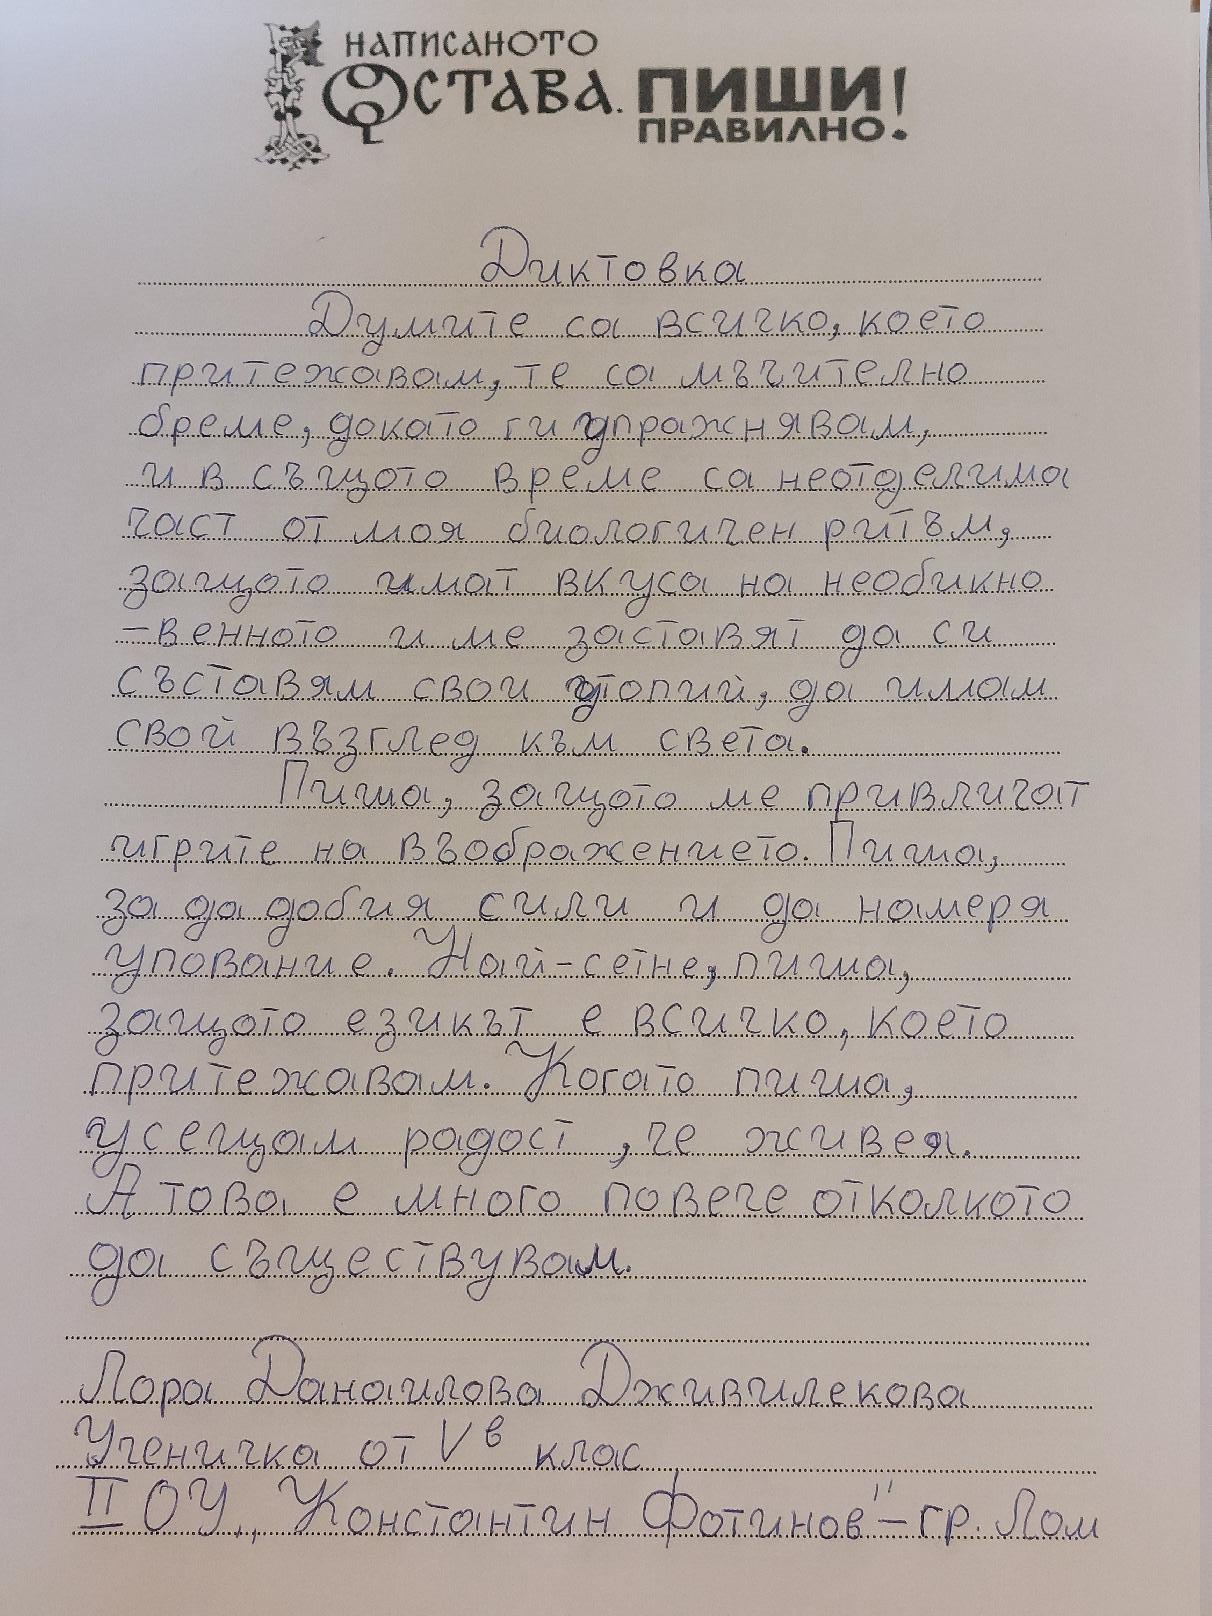 НАПИСАНОТО
ОСТАВА. ПИШИ
ПРАВИЛНО!
Диктовка
Думите са всичко, което
притежавам, те са мъчително
бреме, докато ги упражнявам,
и в същото време са неотделима
част от моя биологичен ритъм,
защото имат вкуса на необикно
-венното и ме заставят да си
съставям свои утопий, да имам
свой възглед към света.
Пиша, защото ме привличат
игрите на въображението. Пиша,
за да добия сили и да намеря
упование. Най-сетне, пиша,
защото езикът е всичко, което
притежавам. Когато пиша,
усещам радост , че живея.
А това е много повече отколкото
да съществувам.
Лора Данаилова Дживилекова
Ученичка от V в клас
II ОУ „Константин Фотинов" – гр. Лом